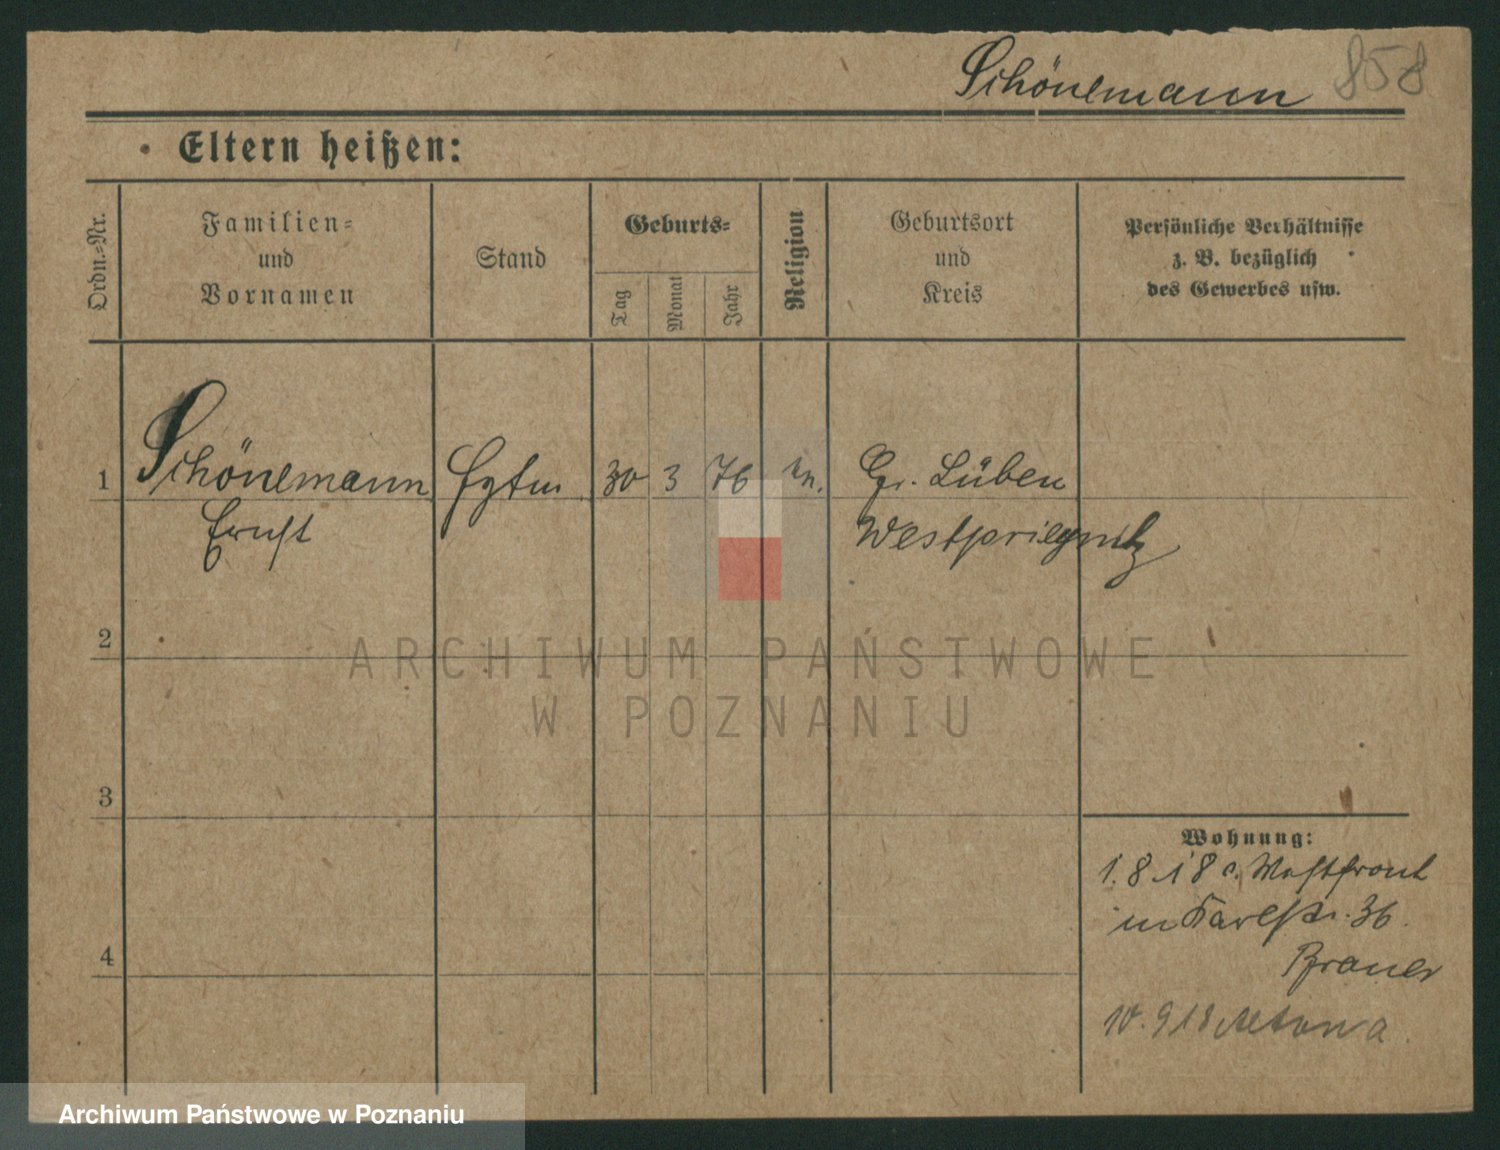 Schönemann 858
Eltern heißen:
Ordn.-Nr.
Familien-
und
Vornamen
Stand
Geburts-
Tag
Monat
Jahr
Religion
Geburtsort
und
Kreis
Persönliche Verhältnisse
z. B. bezüglich
des Gewerbes usw.
1 Schönemann 30 3 76 Gr. Lüben
Ernst Westpriegnitz
2
3
4
Wohnung:
1.8.18 v. Westfront
in Karlstr. 36.
Brauer
10.918 Altona
ARCHIWUM PAŃSTWOWE
W POZNANIU
Archiwum Państwowe w Poznaniu